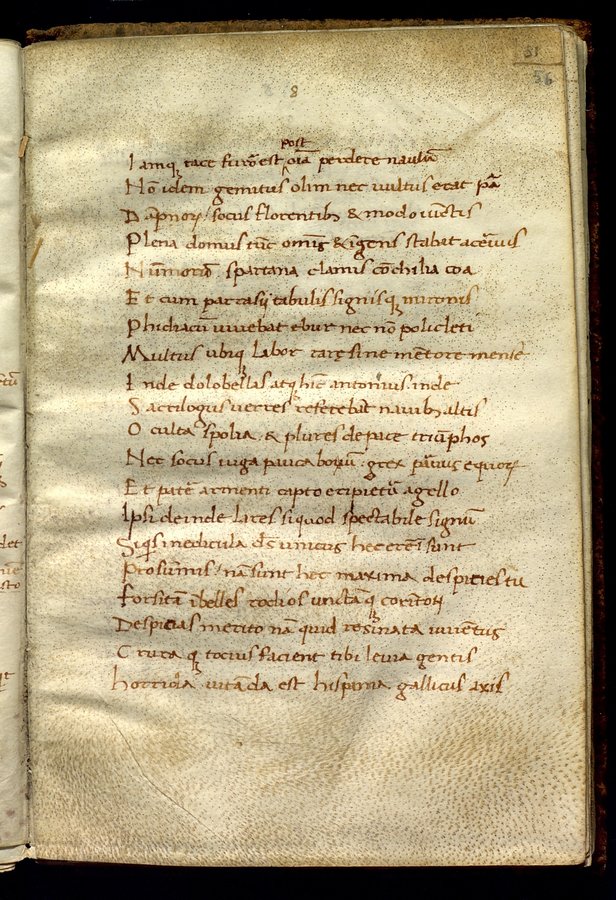 31
56
8
post
Iamq; tace furor̄ est oīa perdere naulū
Nō idem gemitus olim nec uultus erat pā
Dāpnoꝝ socus florentib; & modo uictis
Plena domus tūc omīs & īgens stabat aceruus
Nūmorū spartana clamis cōchilia coa
Et cum parrasij tabulis signisq; mironis
Phidiacū uiuebat ebur nec nō policleti
Multus ubiq; labor rarę sine mētore mensę
Inde dolobellas atq; hīc antonius inde
Sacrilogus uerres referebāt nauib; altis
Oculta spolia & plures de pace triūphos
Nec socus iuga pauca boum grex paruus equoꝝ
Et pater armenti capto eripietur agello
Ipsi deinde lares si quod spectabile signū
Siquis inedicula ds̄ unicus hec etenī sunt
Prosūmis nā sunt hec maxima despicies tu
Forsitā ībelles rodios unctāq; corītoꝝ
Despicias merito nā quid resinata iuuentus
Cruraq; tocius facient tibi leuia gentis
Horrida uitāda est hispania gallicus axis